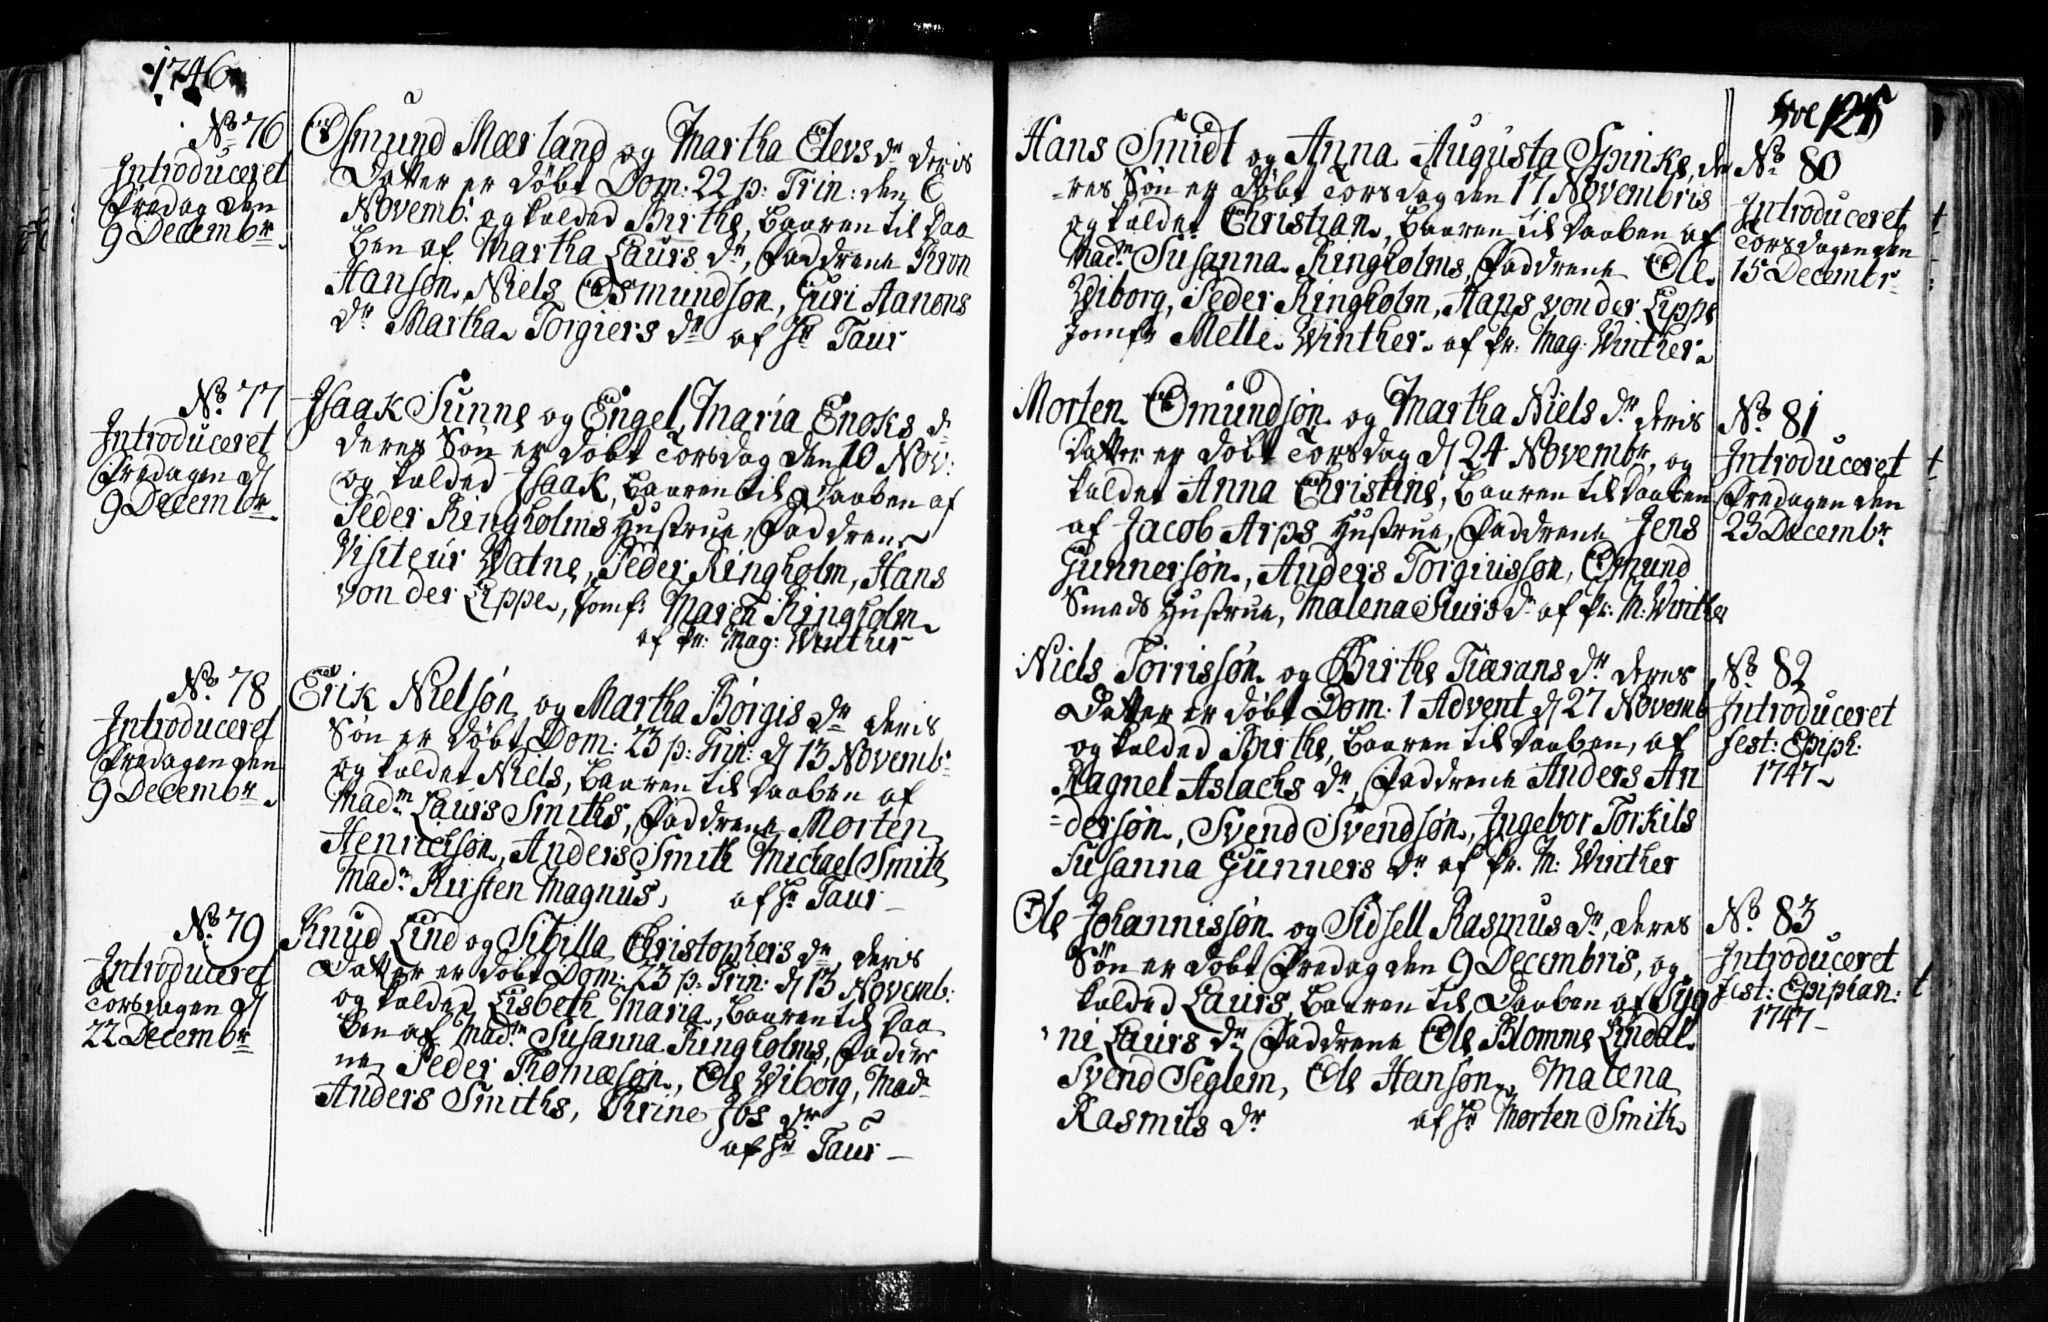 1746
No 76
Introduceret
Fredag den
9 Decembr.
Osmund Mærland og Martha Elevs dr deris
Datter er døbt Dom: 22 p: Trin: den 6
Novemb: og kalded Birthe, baaren til Daa
ben af Martha Laurs dr, Faddrene Tron
Hansøn, Niels Osmundsøn, Guri Hanons
dr Martha Torgiers dr af Hr Taur
No 77
Introduceret
Fredagen d
9 Decembr.
Isaak Sunne og Engel Maria Enoks d
deres Søn er døbt Torsdag den 10 Nov:
og kalded Isaak, baaren til Daaben af
Peder Ringholms Hustrue, Faddrene
Visiteur Vatne, Peder Ringholm, Hans
von der Lippe, Jomf: Maren Ringholm
af Pr: Mag: Winther
No 78
Introduceret
Fredagen den
9 Decembr.
Erik Nielsøn og Martha Børgis dr deris
Søn er døbt Dom: 23 p: Trin: d 13 Novembr
og kaldet Niels, baaren til Daaben af
Madm Laurs Smiths, Faddrene Morten
Henrichsøn, Anders Smith Michael Smith
Madm Kirsten Magnus, af Hr Taur
No 79
Introduceret
Torsdagen d
22 Decembr
Knud Lind og Sibilla Christophers dr, deris
Datter er døbt Dom: 23 p: Trin: d 13 Novemb:
og kalded Lisbeth Maria, baaren til Daa
ben af Madm Susanna Ringholms, Faddre
ne Peder Thomæsøn, Ole Wiborg, Madm
Anders Smiths, Trine Jos dr
af Hr Taur
125
Hans Smidt og Anna Augusta Spinke, de
res Søn er døbt Torsdag den 17 Novembris
og kaldet Christian, baaren til Daaben af
Madm Susanna Ringholms, Faddrene Ole
Wiborg, Peder Ringholm, Hans von der Lippe
Jomfr Mette Winther af Pr: Mag: Winther
No 80
Introduceret
Torsdagen den
15 Decembr
Morten Omundsøn og Martha Niels dr deris
Datter er døbt Torsdag d 24 Novembr, og
kaldet Anna Christine, baaren til Daaben
af Jacob Arps Hustrue, Faddrene Jens
Gunnersøn, Anders Torgiussøn, Edmund
Smeds Hustrue, Malena Siurs dr af Pr: M: Winther
No 81
Introduceret
Fredagen den
23 Decembr
Niels Torrissøn og Birthe Tiærans dr deres
Datter er døbt Dom: 1 Advent d 27 Novemb
og kalded Birthe, baaren til Daaben, af
Ragnel Aslachs dr, Faddrene Anders An
dersøn, Svend Svendsøn, Ingebor Torkils
Susanna Gunners dr af Pr. M: Winther
No 82
Introduceret
Fest: Epiph:
1747
Ole Johannissøn og Sidsell Rasmus dr, deres
Søn er døbt Fredag den 9 Decembris, og
kalded Laurs, baaren til Daaben af Syg
ni Laurs dr Faddrene Ole Blomme Lindal
Svend Seglem, Ole Hansøn, Malena
Rasmus dr af Hr Morten Smith
No 83
Introduceret
Fest: Epiphan:
1747